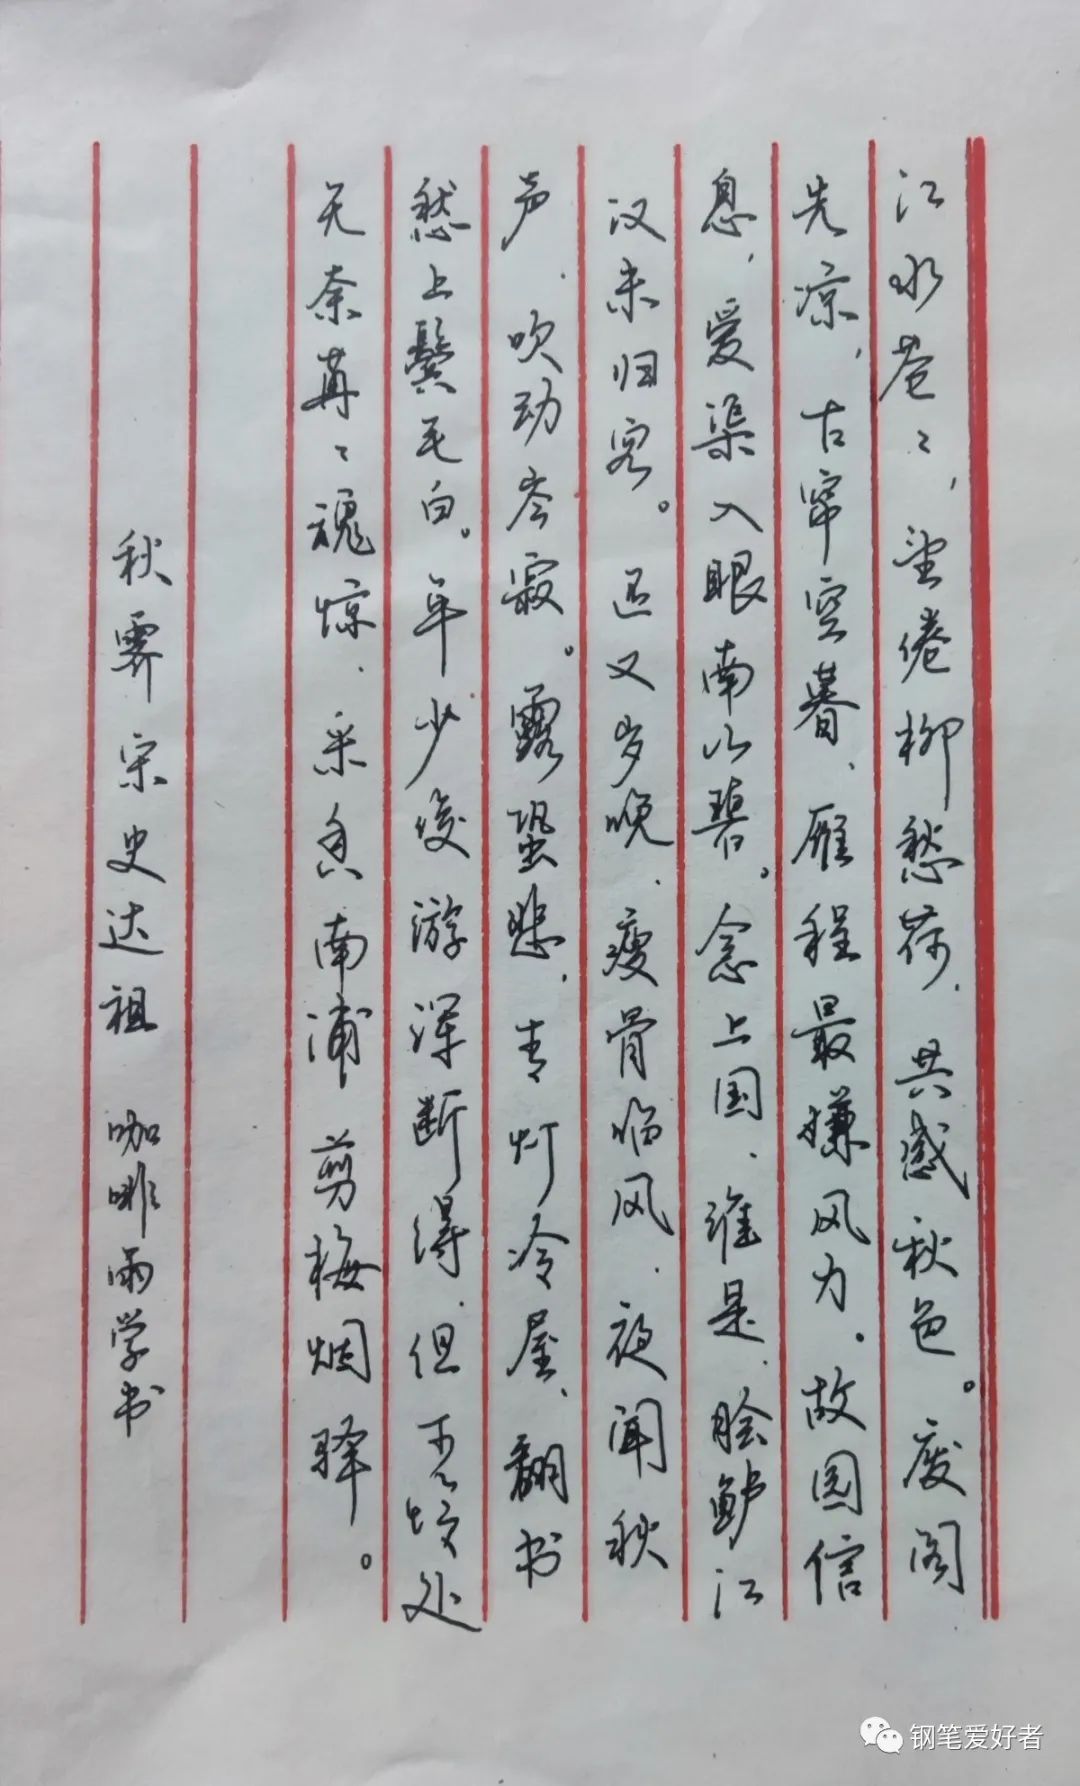 江水苍々，望倦柳愁荷，共感秋色。废阁
先凉，古帘空暮，雁程最嫌风力。故园信
息，爱渠入眼南山碧。念上国，谁是，脍鲈江
汉未归客。还又岁晚，瘦骨临风，夜闻秋
声，吹动岑寂。露蛩悲，青灯冷屋，翻书
愁上鬓毛白。年少俊游浑断得，但可怜处
无奈苒々魂惊，采香南浦剪梅烟驿。
秋霁 宋 史达祖 咖啡雨学书
钢笔爱好者